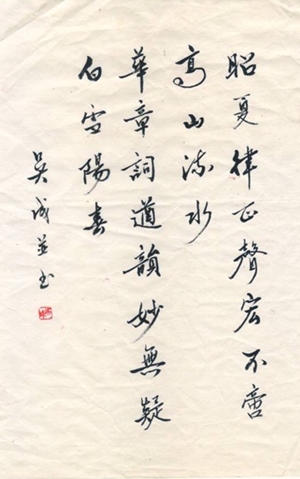 昭夏律正聲宏不啻
高山流水
華章詞遒韻妙無疑
白雪陽春
吴成並书